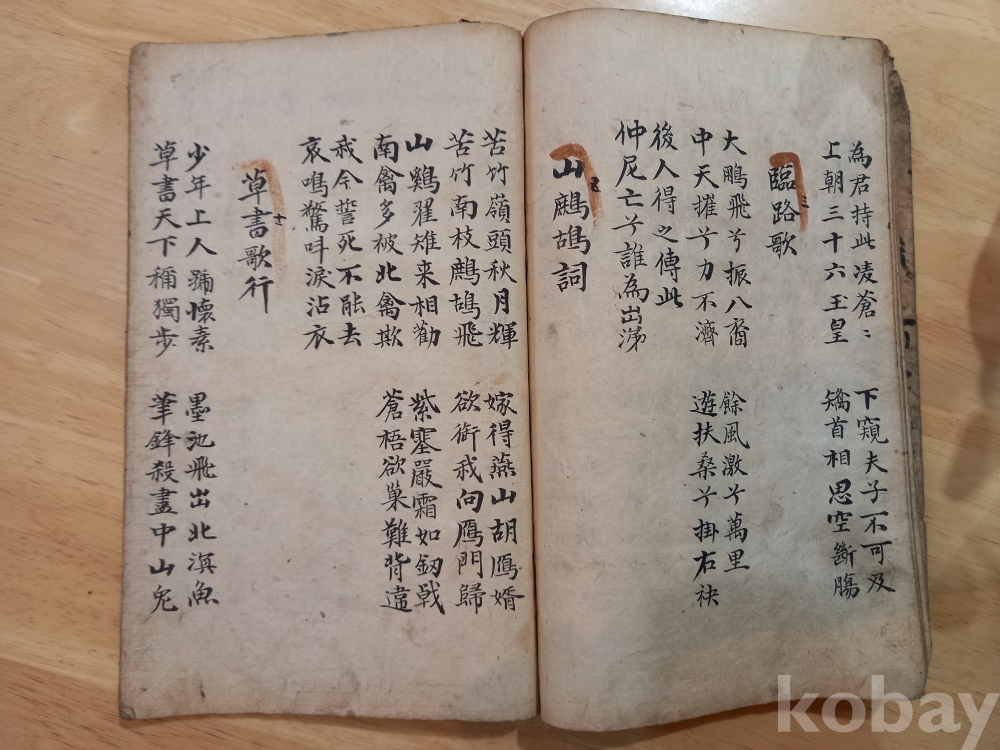 為君持此凌蒼〻 下窺夫子不可及
上朝三十六玉皇 矯首相思空斷膓
臨路歌 三
大鵬飛兮振八裔 餘風激兮萬里
中天摧兮力不濟 遊扶桑兮掛右袂
後人得之傳此
仲尼亡兮誰為出涕
山鷓鴣詞 五
苦竹嶺頭秋月輝 嫁得燕山胡鴈婿
苦竹南枝鷓鴣飛 欲銜我向鴈門歸
山鷄翟雉来相勸 紫塞嚴霜如劒戟
南禽多被北禽欺 蒼梧欲巢難背違
我今誓死不能去
哀鳴驚呌淚沾衣
草書歌行
少年上人號懷素 墨池飛出北溟魚
草書天下稱獨步 筆鋒殺盡中山兎
kobay